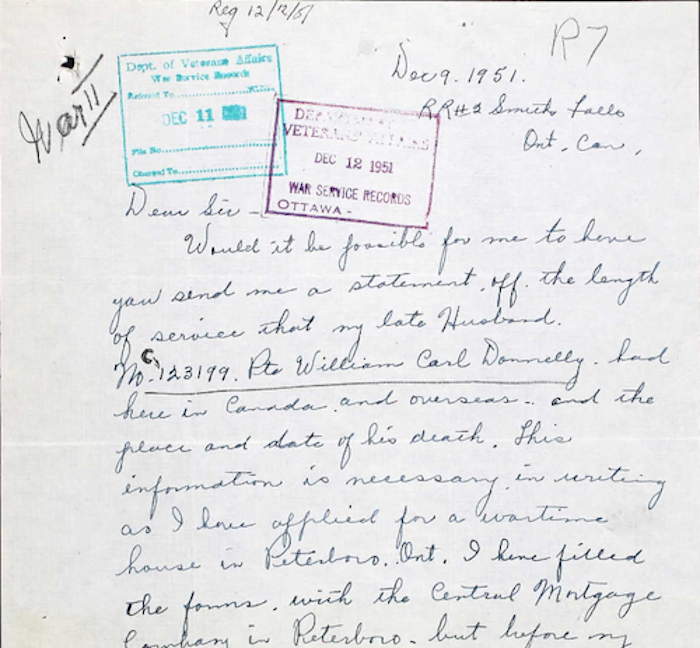 Reg 12/12/51
R7
War II
Dept. of Veterans Affairs
War Service Records
Referred To
DEC 11
File No.
Charged To
DEPARTMENT
VETERANS AFFAIRS
DEC 12 1951
WAR SERVICE RECORDS
OTTAWA -
Dec 9. 1951.
RR#2 Smiths Falls
Ont, Can,
Dear Sir -
Would it be possible for me to have
you send me a statement, off the length
of service that my late Husband.
No. C 123199. Pte William Carl Donnelly. had
here in Canada and overseas - and the
place and date of his death. This
information is necessary in writing
as I have applied for a wartime
house in Peterboro, Ont. I have filled
the forms, with the Central Mortgage
Company in Peterboro - but before my